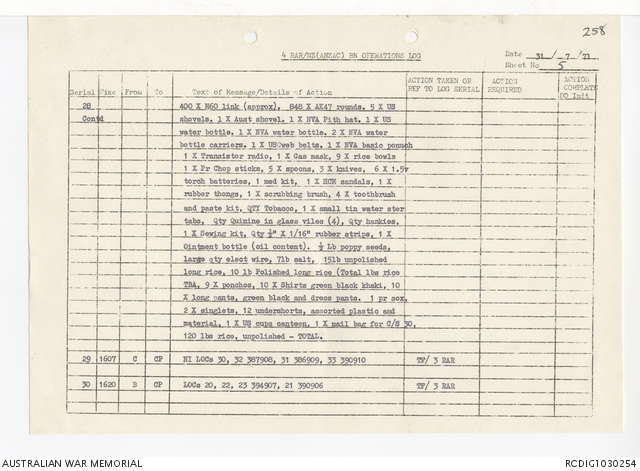 258
4 RAR/NZ(ANZAC) BN OPERATIONS LOG
Date 31/7/71
Sheet No 5
Serial Time From To Text of Message/Details of Action ACTION TAKEN OR REF TO LOG SERIAL ACTION REQUIRED ACTION COMPLETE DO Init
28 Contd 400 X M60 link (approx), 848 X AK47 rounds. 5 X US
shovels. 1 X Aust shovel. 1 X NVA Pith hat. 1 X US
water bottle. 1 X NVA water bottle. 2 X NVA water
bottle carriers. 1 X US web belts. 1 X NVA basic pounch
1 X Transistor radio, 1 X Gas mask, 9 X rice bowls
1 X Pr Chop sticks, 5 X spoons, 3 X knives, 6 X 1.5v
torch batteries, 1 med kit, 1 X HCM sandals, 1 X
rubber thongs, 1 X scrubbing brush, 4 X toothbrush
and paste kit, QTY Tobacco, 1 X small tin water ster
tabs, Qty Quinine in glass viles (4), Qty hankies,
1 X Sewing kit, Qty ½" X 1/16" rubber strips, 1 X
Ointment bottle (oil content). ½ Lb poppy seeds,
large qty elect wire, 7lb salt, 15lb unpolished
long rice, 10 lb Polished long rice (Total lbs rice
TBA, 9 X ponchos, 10 X Shirts green black khaki, 10
X long pants, green black and dress pants. 1 pr sox,
2 X singlets, 12 undershorts, assorted plastic and
material, 1 X US cups canteen, 1 X mail bag for C/S 30,
120 lbs rice, unpolished - TOTAL.
29 1607 C CP NI LOCs 30, 32 387908, 31 386909, 33 390910 TP/ 3 RAR
30 1620 B CP LOCs 20, 22, 23 394907, 21 390906 TP/ 3 RAR
AUSTRALIAN WAR MEMORIAL
RCDIG1030254